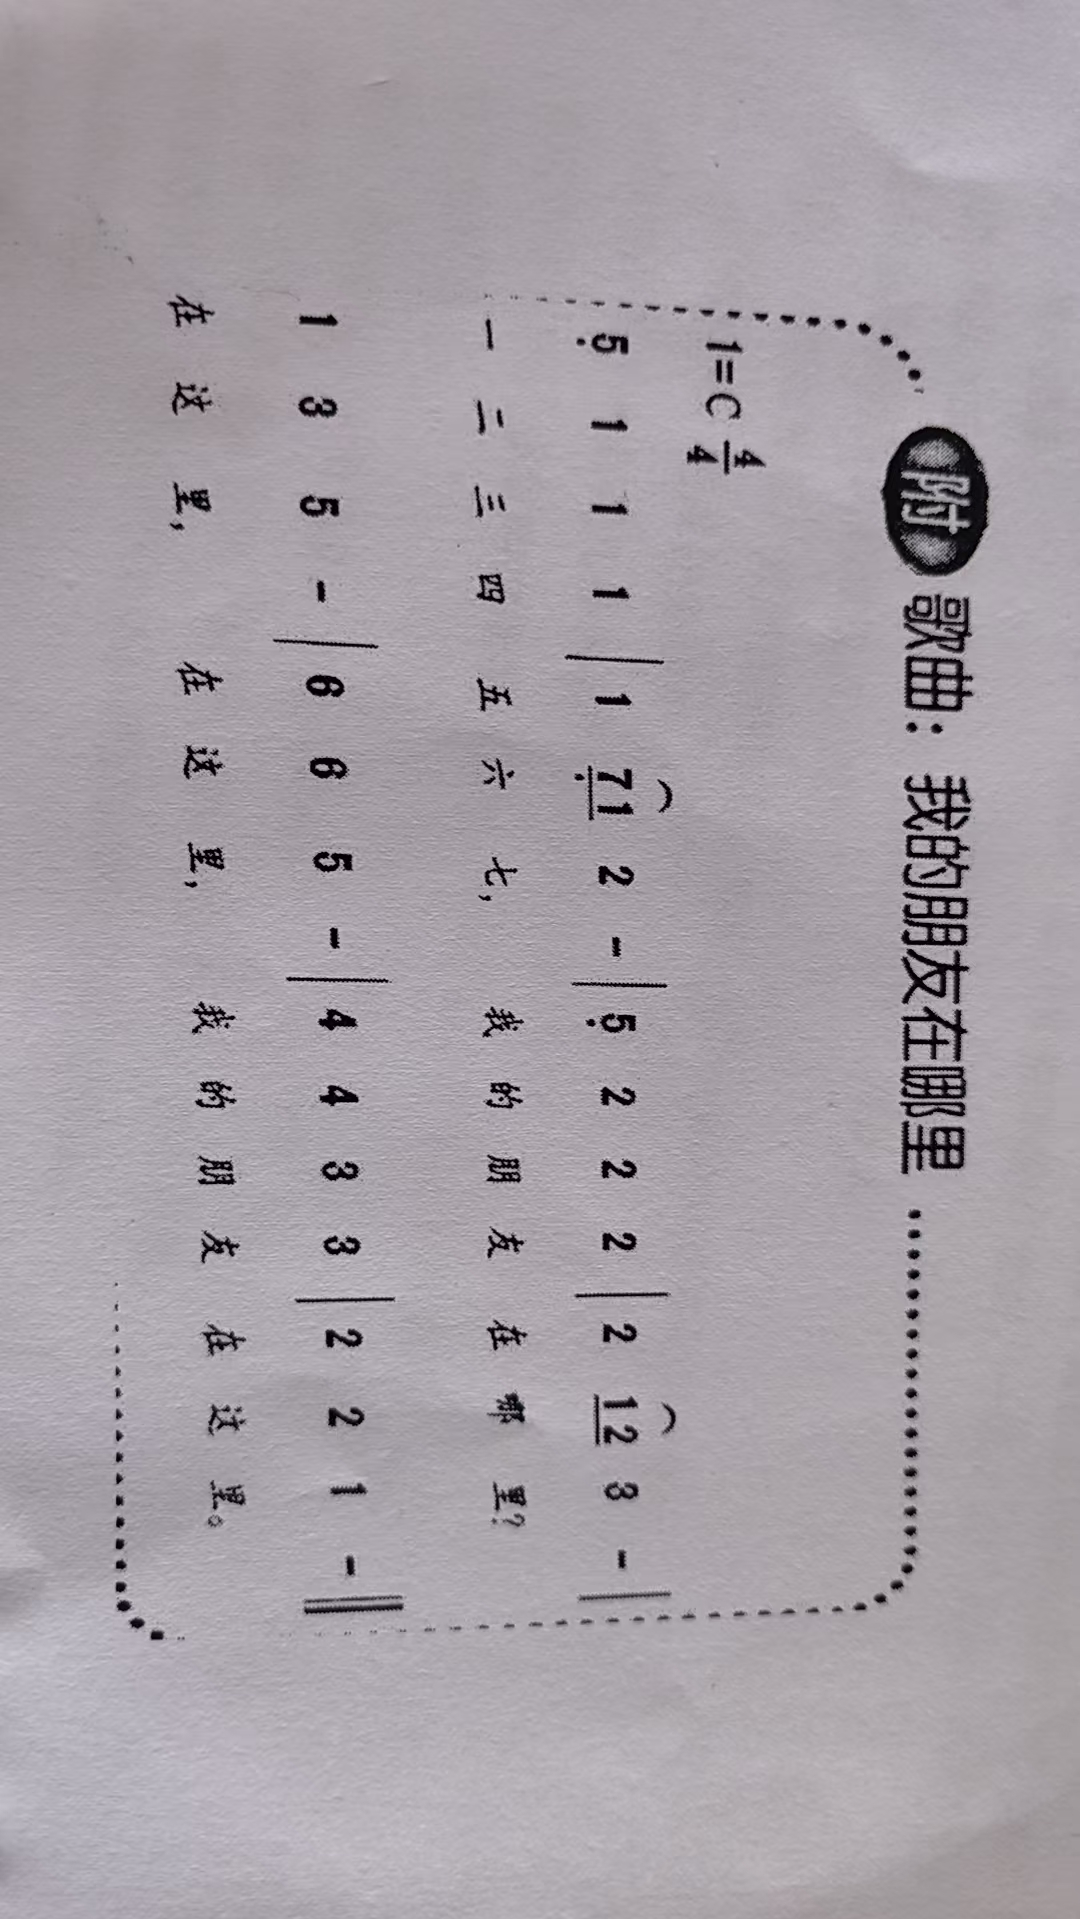 附 歌曲：我的朋友在哪里
1=C 4/4
5̣ 1 1 1 | 1 7̣1 2 - | 5̣ 2 2 2 | 2 12 3 - |
一 二 三 四 五 六 七， 我 的 朋 友 在 哪 里？
1 3 5 - | 6 6 5 - | 4 4 3 3 | 2 2 1 - ‖
在 这 里， 在 这 里， 我 的 朋 友 在 这 里。